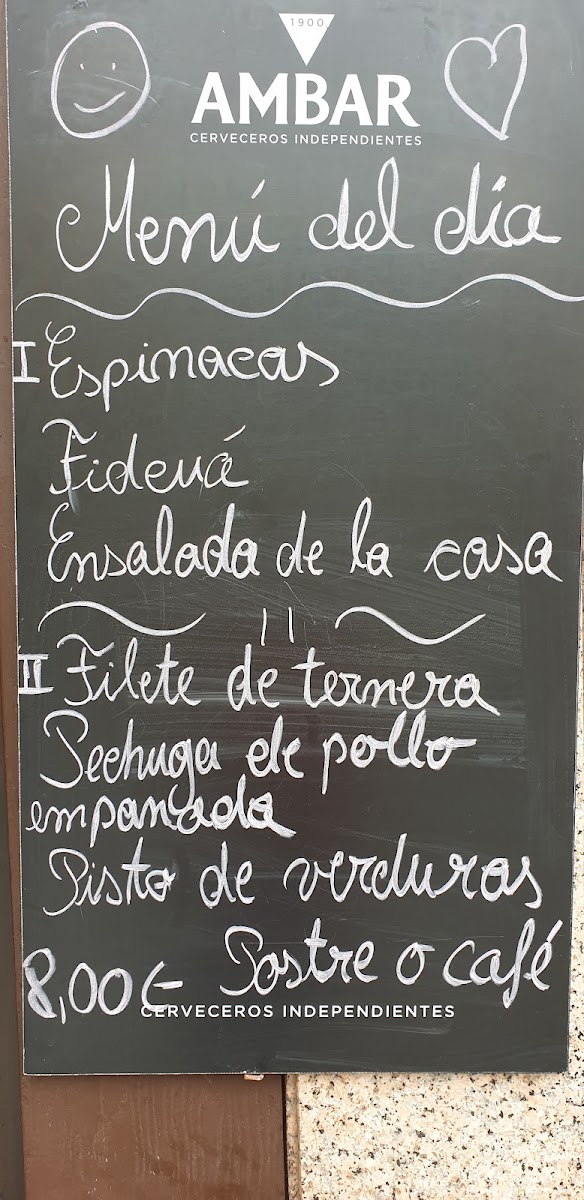 1900
AMBAR
CERVECEROS INDEPENDIENTES
Menú del día
I Espinacas
Fideuá
Ensalada de la casa
II Filete de ternera
Pechuga de pollo
empanada
Pisto de verduras
8,00€ Postre o café
CERVECEROS INDEPENDIENTES